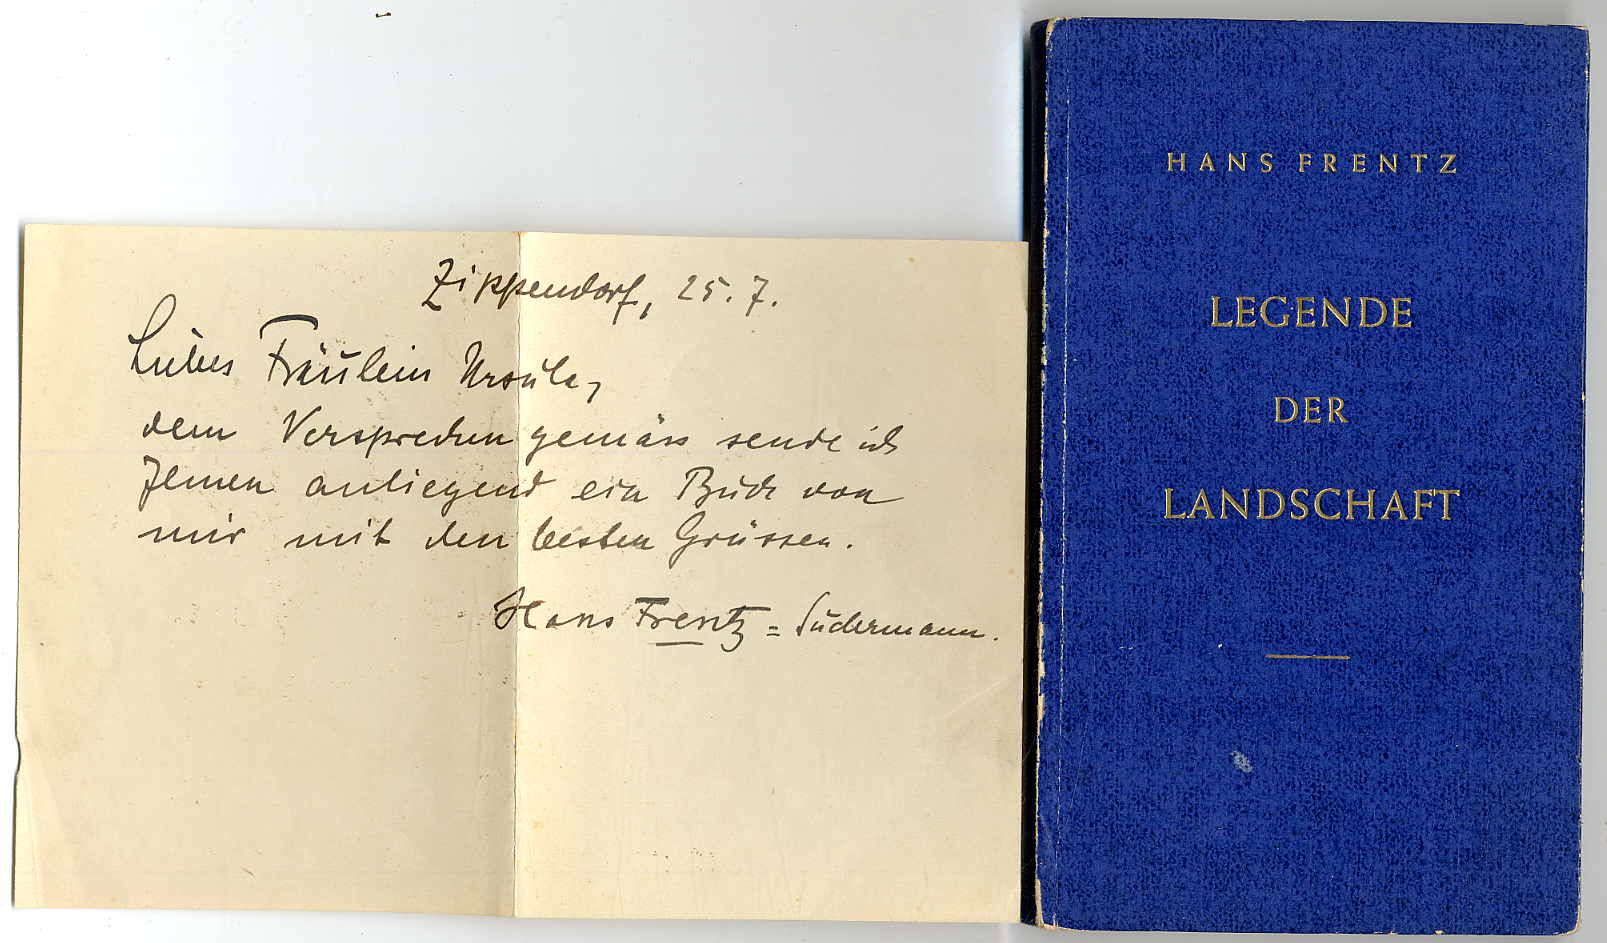 Zippendorf, 25. 7.
Liebes Fräulein Ursula,
dem Versprechen gemäss sende ich
Ihnen anliegend ein Buch von
mir mit den besten Grüssen.
Hans Frentz = Sudermann.
HANS FRENTZ
LEGENDE
DER
LANDSCHAFT